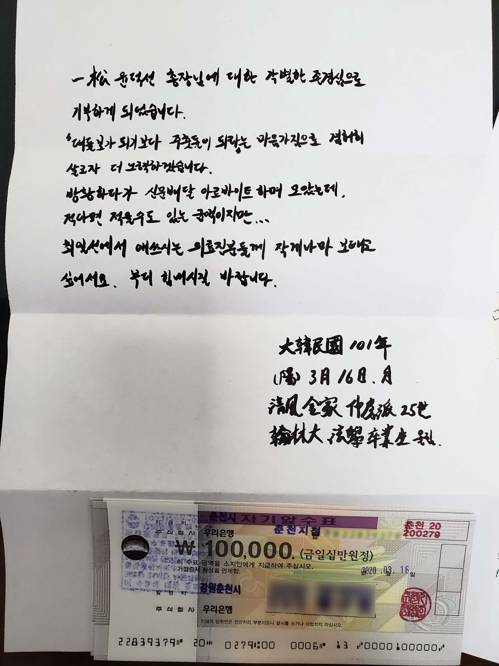 一松 윤덕선 총장님에 대한 각별한 존경심으로
기부하게 되었습니다.
"대들보가 되기보다 주춧돌이 되라는 마음가짐으로 겸허히
살고자 더 노력하겠습니다.
방황하다가 신문배달 아르바이트하며 모았는데,
적다면 적을수도 있는 금액이지만...
최일선에서 애쓰시는 의료진분들께 작게나마 보태고
싶어서요. 부디 힘내시길 바랍니다.
大韓民國 101年
(陽) 3月 16日. 月
淸風金家 仲房派 25世
翰林大 法學 卒業生 올림.
춘천시 자기앞수표
주식회사 우리은행 춘천지점
춘천 20
200279
₩ 100,000. (금일십만원정)
이 수표 금액을 소지인에게 지급하여 주십시오.
거절증서 작성을 면제함.
2020 .03. 16
강원춘천시
주식회사 우리은행
22839379 20 0279 00 0006 13 0000100000